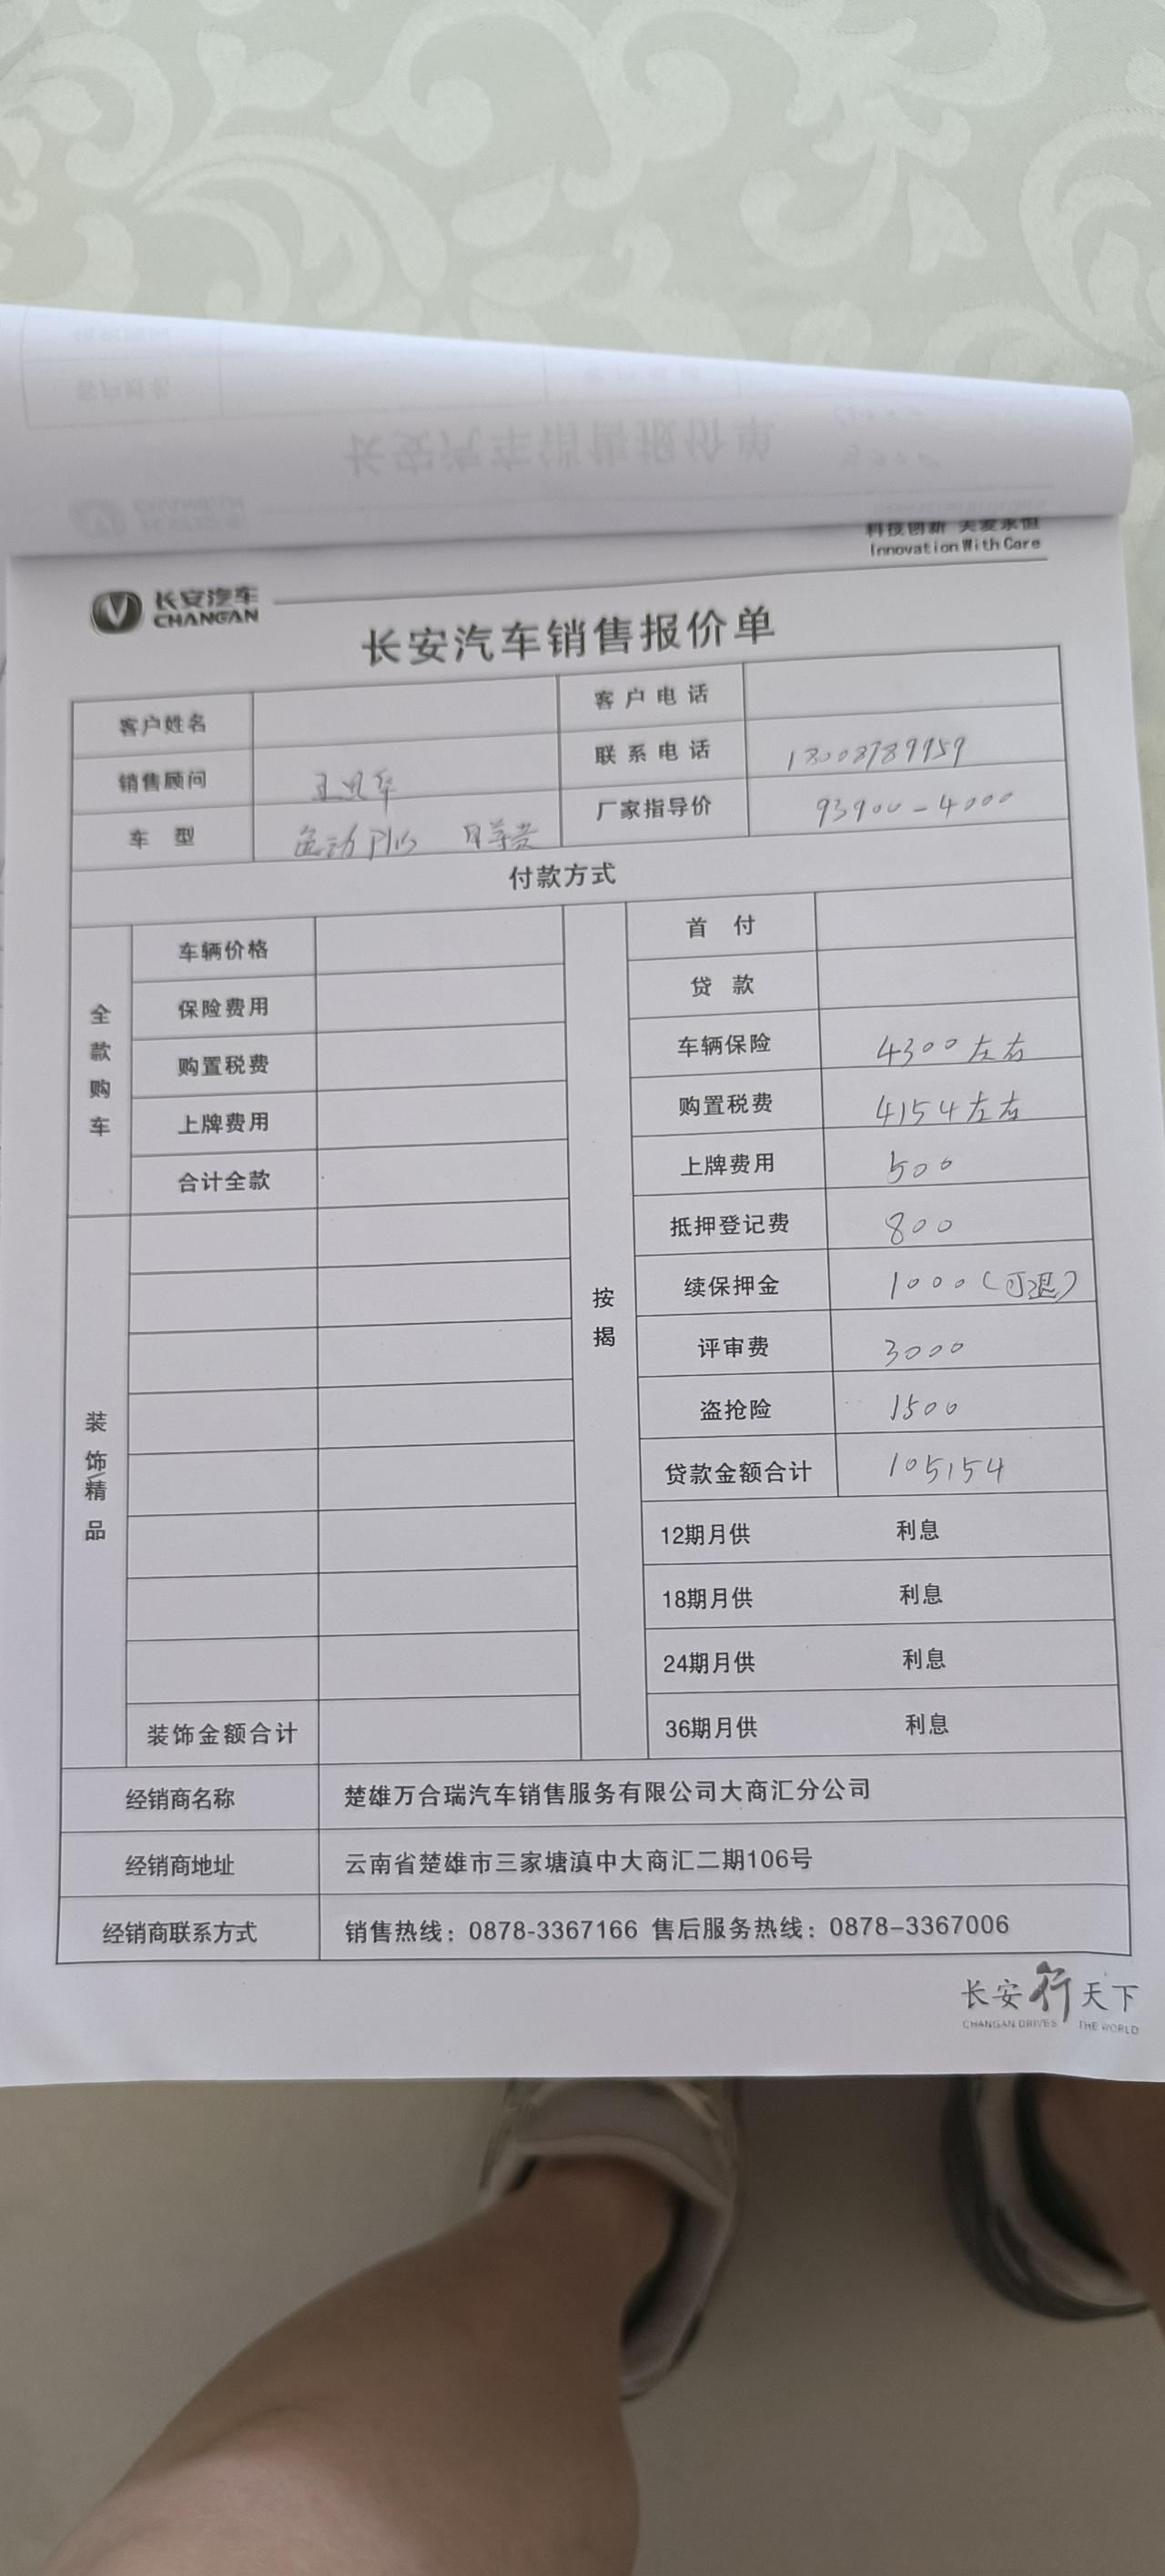 科技创新 关爱永恒
Innovation With Care
长安汽车
CHANGAN
长安汽车销售报价单
客户姓名 客户电话
销售顾问 联系电话 18008789959
车型 逸动 Plus 厂家指导价 93900-4000
付款方式
全款购车
车辆价格
保险费用
购置税费
上牌费用
合计全款
装饰\精品
装饰金额合计
按揭
首付
贷款
车辆保险 4300左右
购置税费 4154左右
上牌费用 500
抵押登记费 800
续保押金 1000(可退)
评审费 3000
盗抢险 1500
贷款金额合计 105154
12期月供 利息
18期月供 利息
24期月供 利息
36期月供 利息
经销商名称 楚雄万合瑞汽车销售服务有限公司大商汇分公司
经销商地址 云南省楚雄市三家塘滇中大商汇二期106号
经销商联系方式 销售热线：0878-3367166 售后服务热线：0878-3367006
长安行天下
CHANGAN DRIVES THE WORLD